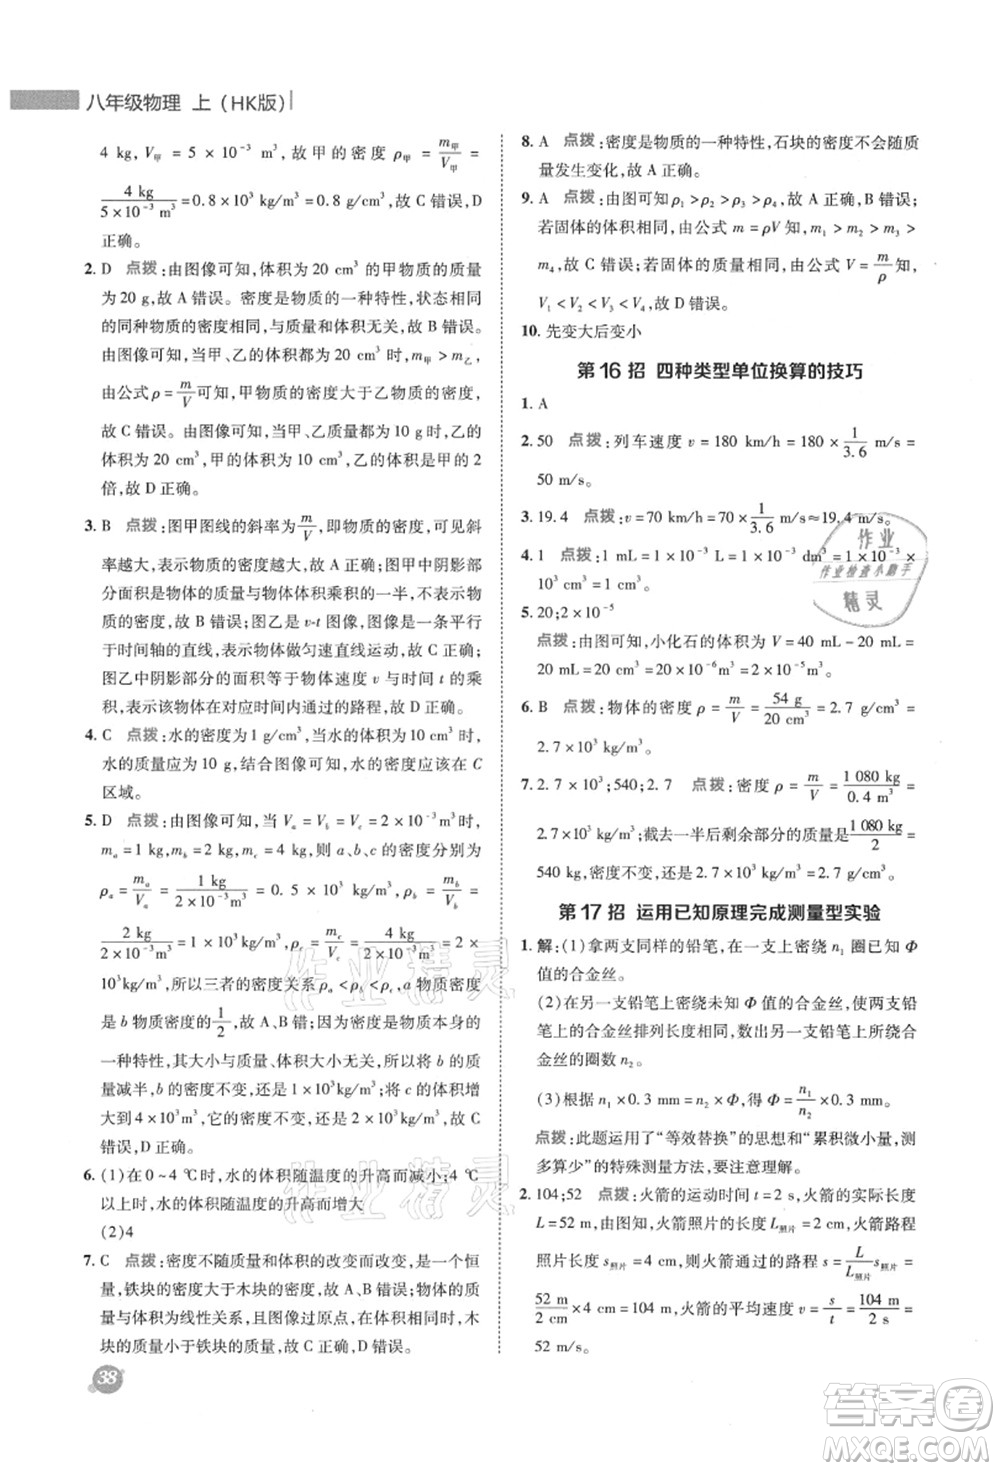 八年级物理 上（HK版）
4 kg，V甲 = 5 × 10⁻³ m³，故甲的密度 ρ甲 = m甲/V甲 =
4 kg/(5×10⁻³ m³) = 0.8×10³ kg/m³ = 0.8 g/cm³，故 C 错误，D
正确。
2. D 点拨：由图像可知，体积为 20 cm³ 的甲物质的质量
为 20 g，故 A 错误。密度是物质的一种特性，状态相同
的同种物质的密度相同，与质量和体积无关，故 B 错误。
由图像可知，当甲、乙的体积都为 20 cm³ 时，m甲 > m乙，
由公式 ρ = m/V 可知，甲物质的密度大于乙物质的密度，
故 C 错误。由图像可知，当甲、乙质量都为 10 g 时，甲的
体积为 10 cm³，乙的体积为 20 cm³，乙的体积是甲的 2
倍，故 D 正确。
3. B 点拨：图甲图线的斜率为 m/V，即物质的密度，可见斜
率越大，物质的密度越大。图甲中阴影部分的面积，表示
的是物体的质量与物体体积乘积的一半，不表示物体的
密度，故 A 错误，B 正确；图乙是 v-t 图像，图像是一条平行
于时间轴的直线，表示物体做匀速直线运动，故 C 错误；
图乙中阴影部分的面积等于物体速度 v 与时间 t 的乘
积，表示该物体在对应时间内通过的路程，故 D 错误。
4. C 点拨：水的密度为 1 g/cm³，所以体积为 50 cm³ 时，
水的质量应为 50 g，结合图像可知，水的密度应在 C
区域。
5. D 点拨：由图像可知，当 Va = Vb = Vc = 2×10⁻³ m³ 时，
ma = 1 kg，mb = 2 kg，mc = 4 kg，则 a、b、c 的密度分别为
ρa = ma/Va = 1 kg/(2×10⁻³ m³) = 0.5 × 10³ kg/m³，ρb = mb/Vb =
2 kg/(2×10⁻³ m³) = 1×10³ kg/m³，ρc = mc/Vc = 4 kg/(2×10⁻³ m³) = 2×
10³ kg/m³，所以三者的密度关系 ρa < ρb < ρc，a 物质的密度
是 b 物质密度的 1/2，故 A、B 错误；因为密度是物质本身的
一种特性，其大小与质量、体积大小无关，所以将 b 的质
量减半，b 的密度不变，还是 1×10³ kg/m³；将 c 的体积增
大到 4×10⁻³ m³，它的密度不变，还是 2×10³ kg/m³，故 C
错误，D 正确。
6. (1)在 0～4 ℃时，水的体积随温度的升高而减小；4 ℃
以上时，水的体积随温度的升高而增大
(2)4
7. C 点拨：密度不随质量和体积的改变而改变，是一个恒
量，铁块的密度大于木块的密度，故 A、B 错误；物体的质
量与体积为线性关系，图像过原点，故 C 正确；由公式
m = ρV 可知，在体积相同时，木
块的质量小于铁块的质量，故 D 错误。
38
8. A 点拨：密度是物质的一种特性，石块的密度不会随质
量发生变化，故 A 正确。
9. A 点拨：由图可知 ρ1 > ρ2 > ρ3 > ρ4，故 A 正确，B 错误；
若固体的体积相同，由公式 m = ρV 知，m1 > m2 > m3 >
m4，故 C 错误；若固体的质量相同，由公式 V = m/ρ 知，
V1 < V2 < V3 < V4，故 D 错误。
10. 先变大后变小
第 16 招 四种类型单位换算的技巧
1. A
2. 50 点拨：列车速度 v = 180 km/h = 180 × 1/3.6 m/s =
50 m/s。
3. 19.4 点拨：v = 70 km/h = 70 × 1/3.6 m/s ≈ 19.4 m/s。
4. 1 点拨：1 mL = 1×10⁻³ L = 1×10⁻³ dm³ = 1×10⁻³ ×
10³ cm³ = 1 cm³。
5. 20；2×10⁻⁵
点拨：由图可知，小化石的体积为 V = 40 mL - 20 mL =
20 mL = 20 cm³ = 20×10⁻⁶ m³ = 2×10⁻⁵ m³。
6. B 点拨：物体的密度 ρ = m/V = 54 g/20 cm³ = 2.7 g/cm³ =
2.7×10³ kg/m³。
7. 2.7×10³；540；2.7×10³ 点拨：密度 ρ = m/V = 1 080 kg/0.4 m³ =
2.7×10³ kg/m³；截去一半后剩余部分的质量是 1 080 kg/2 =
540 kg，密度不变，还是 2.7×10³ kg/m³。
第 17 招 运用已知原理完成测量型实验
1. 解：(1)拿两支同样的铅笔，在一支上密绕 n1 圈已知 Φ
值的合金丝。
(2)在另一支铅笔上密绕未知 Φ 值的合金丝，使两支铅
笔上的合金丝排列长度相同，数出另一支铅笔上所绕合
金丝的圈数 n2。
(3)根据 n1×0.3 mm = n2×Φ，得 Φ = n1/n2 × 0.3 mm。
点拨：此题运用了“等效替换”的思想和“累积微小量，测
多算少”的特殊测量方法，要注意理解和应用。
2. 104；52 点拨：火箭的运动时间 t = 2 s，火箭的实际长度
L = 52 m，由图知，火箭照片的长度 L照片 = 2 cm，火箭路程
照片的长度 s照片 = 4 cm，则火箭通过的路程 s = L/L照片 s照片 =
52 m/2 cm × 4 cm = 104 m，火箭的平均速度 v = s/t = 104 m/2 s =
52 m/s。
作业
作业检查小助手
精灵
作业精灵
作业精灵
答案圈
MXQE.COM